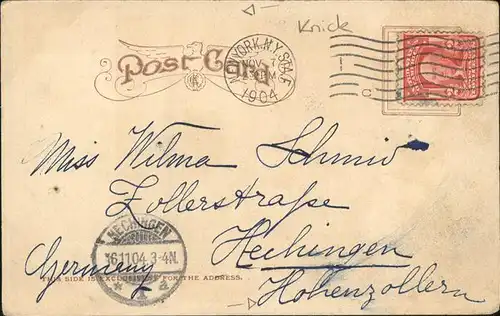 Knick
Post Card
NEW YORK, N.Y. STA. F
NOV
1904
Miss Wilma Schmid
Zollerstraße
Hechingen
Germany
Hohenzollern
HECHINGEN
16.11.04. 3-4N.
THIS SIDE IS EXCLUSIVELY FOR THE ADDRESS.